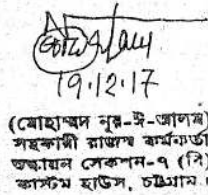 19.12.17
(মোহাম্মদ নূর-ই-আলম)
সহকারী রাজস্ব কর্মকর্তা
শুল্কায়ন সেকশন-৭ (বি)
কাস্টম হাউস, চট্টগ্রাম।